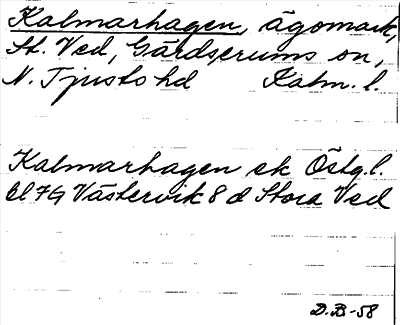 Kalmarhagen, ägomark,
St. Ved, Gärdserums sn,
N. Tjusts hd Kalm. l.
Kalmarhagen ek Östg.l.
bl 7G Västervik 8 d Stora Ved
D.B-58